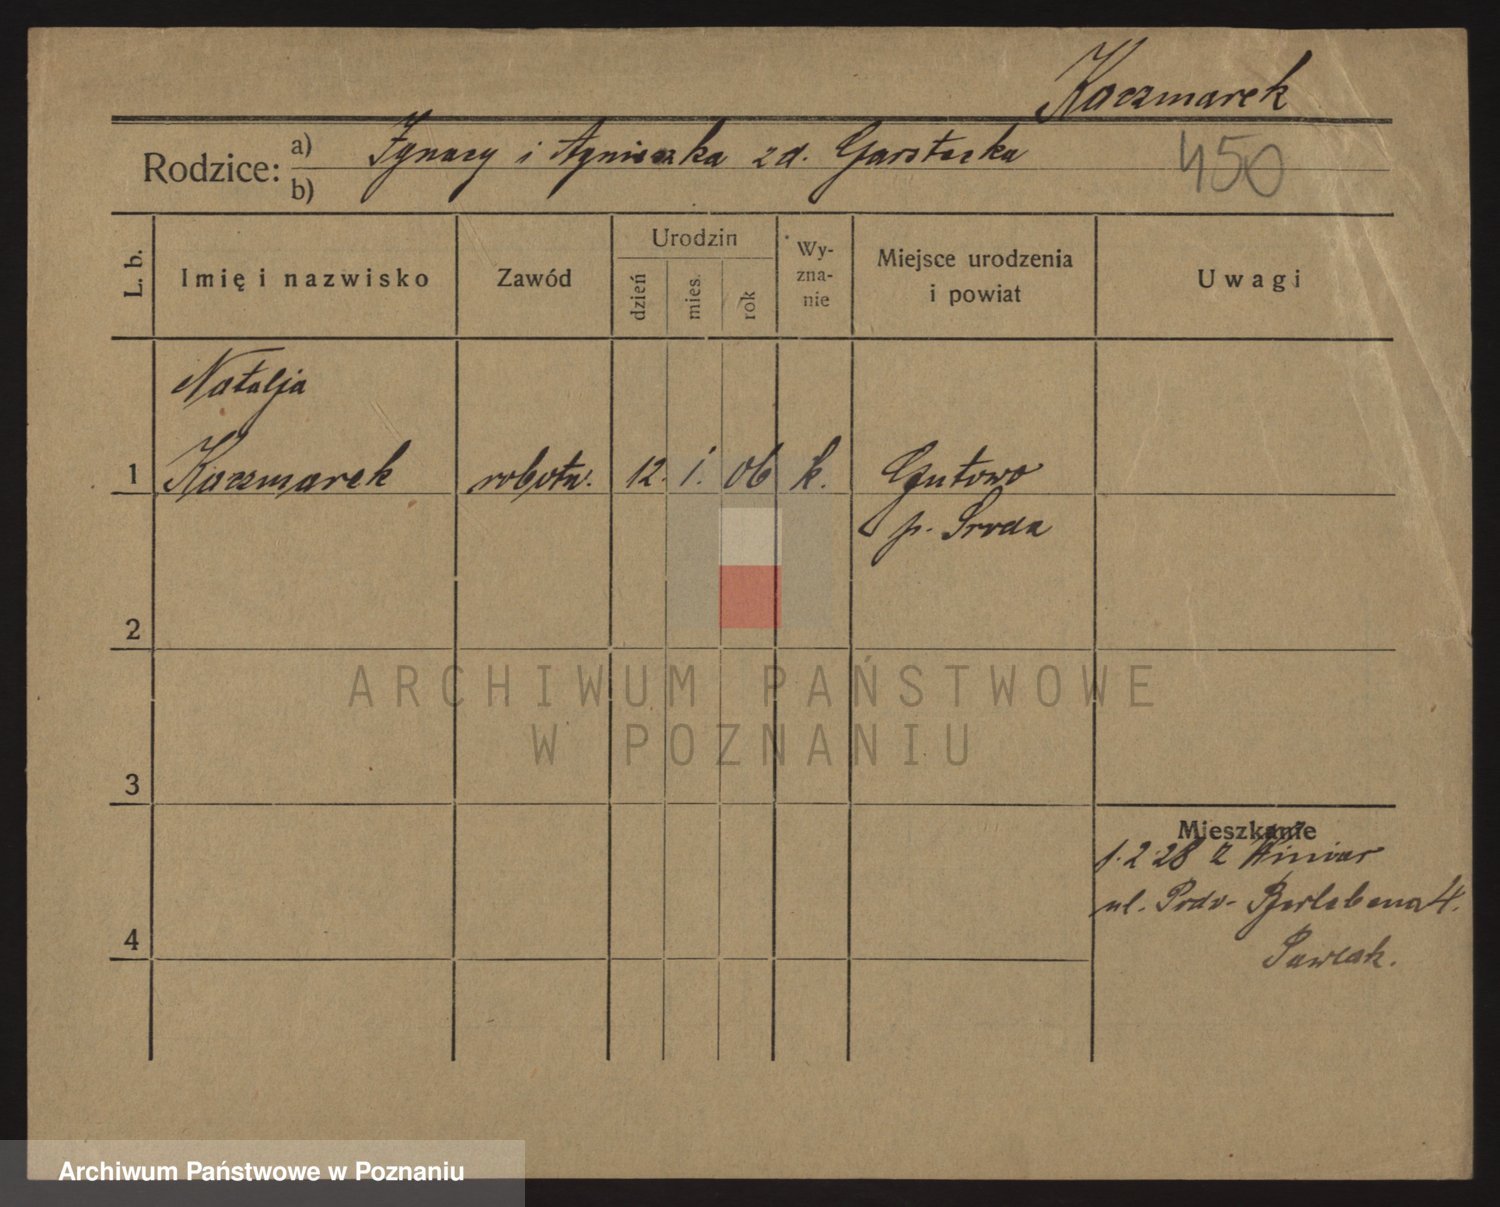 Kaczmarek
Rodzice: a) Ignacy i Agnieszka zd. Garstecka
b)
450
L. b.
Imię i nazwisko
Zawód
Urodzin
dzień
mies.
rok
Wy-
zna-
nie
Miejsce urodzenia
i powiat
Uwagi
Natalja
1 Kaczmarek robotn. 12. 1. 06 k. Gutowo
p. Środa
2
3
4
Mieszkanie
1.2.28 z Winiar
ul. Prdv-
4.
Pawlak.
ARCHIWUM PAŃSTWOWE
W POZNANIU
Archiwum Państwowe w Poznaniu